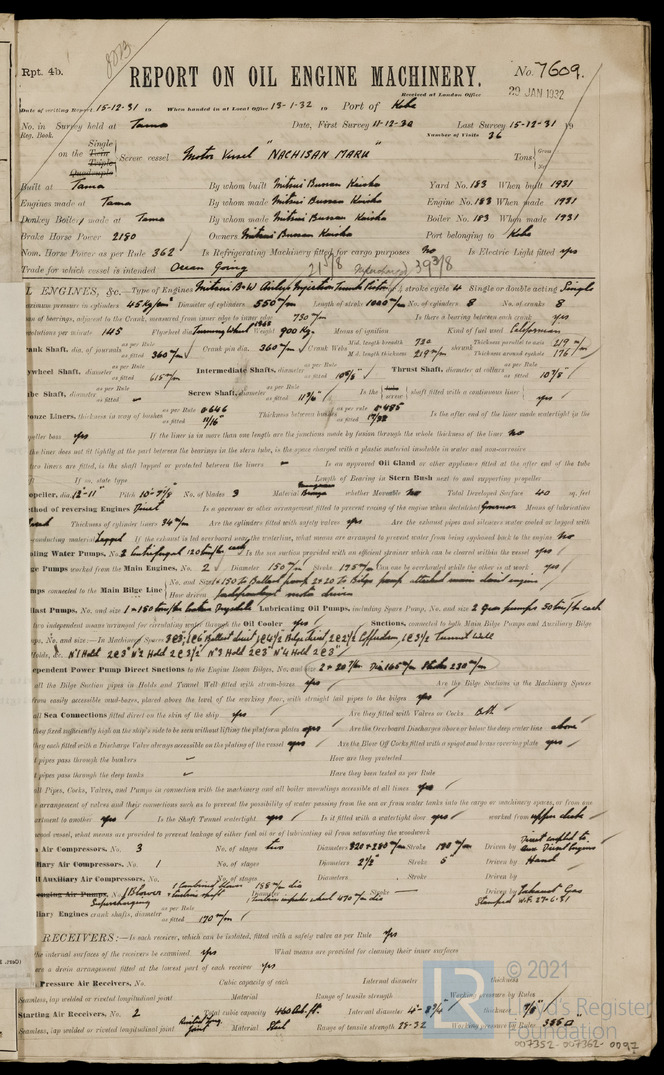 8073
Rpt. 4b.
REPORT ON OIL ENGINE MACHINERY.
No. 7609.
Received at London Office
29 JAN 1932
Date of writing Report 15-12-31 19 When handed in at Local Office 13-1-32 19 Port of Kobe
No. in Survey held at Tama Date, First Survey 11-12-30 Last Survey 15-12-31 19
Reg. Book. Number of Visits 36
on the Single Twin Triple Quadruple Screw vessel Motor Vessel "NACHISAN MARU" Tons Gross Net
Built at Tama By whom built Mitsui Bussan Kaisha Yard No. 183 When built 1931
Engines made at Tama By whom made Mitsui Bussan Kaisha Engine No. 183 When made 1931
Donkey Boiler made at Tama By whom made Mitsui Bussan Kaisha Boiler No. 183 When made 1931
Brake Horse Power 2180 Owners Mitsui Bussan Kaisha Port belonging to Kobe
Nom. Horse Power as per Rule 362 Is Refrigerating Machinery fitted for cargo purposes No Is Electric Light fitted yes
Trade for which vessel is intended Ocean Going 21 5/8 39 3/8
L ENGINES, &c.—Type of Engines Mitsui B&W Airless Injection Trunk Piston 4 stroke cycle 4 Single or double acting Single
ximum pressure in cylinders 45 Kg/cm² Diameter of cylinders 550 m/m Length of stroke 1000 m/m No. of cylinders 8 No. of cranks 8
an of bearings, adjacent to the Crank, measured from inner edge to inner edge 730 m/m Is there a bearing between each crank yes
volutions per minute 145 Flywheel dia. Turning Wheel 1868 Weight 900 Kg. Means of ignition Kind of fuel used Californian
rank Shaft, dia. of journals as per Rule as fitted 360 m/m Crank pin dia. 360 m/m Crank Webs Mid. length breadth 730 Mid. length thickness 219 m/m shrunk Thickness parallel to axis 219 m/m Thickness around eyehole 176
ywheel Shaft, diameter as per Rule as fitted 615 m/m Intermediate Shafts, diameter as per Rule as fitted 10 5/8 Thrust Shaft, diameter at collars as per Rule as fitted 10 7/8"
be Shaft, diameter as per Rule as fitted Screw Shaft, diameter as per Rule as fitted 11 7/16" Is the tube screw shaft fitted with a continuous liner yes
onze Liners, thickness in way of bushes as per Rule 0.646 as fitted 11/16" Thickness between bushes as per Rule 0.485 as fitted 17/32 Is the after end of the liner made watertight in the
peller boss yes If the liner is in more than one length are the junctions made by fusion through the whole thickness of the liner No
the liner does not fit tightly at the part between the bearings in the stern tube, is the space charged with a plastic material insoluble in water and non-corrosive
two liners are fitted, is the shaft lapped or protected between the liners Is an approved Oil Gland or other appliance fitted at the after end of the tube
ft If so, state type Length of Bearing in Stern Bush next to and supporting propeller
opeller, dia. 12'-11" Pitch 10'-7 7/8" No. of blades 3 Material Manganese Bronze whether Moveable No Total Developed Surface 40 sq. feet
ethod of reversing Engines Direct Is a governor or other arrangement fitted to prevent racing of the engine when declutched Governor Means of lubrication
Forced Thickness of cylinder liners 34 m/m Are the cylinders fitted with safety valves yes Are the exhaust pipes and silencers water cooled or lagged with
conducting material Lagged If the exhaust is led overboard near the waterline, what means are arranged to prevent water from being syphoned back to the engine No
oling Water Pumps, No. 2 Centrifugal 120 ton/hr each Is the sea suction provided with an efficient strainer which can be cleared within the vessel yes
ge Pumps worked from the Main Engines, No. 2 Diameter 150 m/m Stroke 175 m/m Can one be overhauled while the other is at work yes
mps connected to the Main Bilge Line No. and Size 1×150 T Ballast pump 2×20 T Bilge pump attached main engine
How driven Independent motor driven
llast Pumps, No. and size 1 - 150 ton/hr Lubricating Oil Pumps, including Spare Pump, No. and size 2 Gear pumps 50 ton/hr each
two independent means arranged for circulating water through the Oil Cooler yes Suctions, connected to both Main Bilge Pumps and Auxiliary Bilge
ps, No. and size:—In Machinery Spaces
Holds, &c. No 1 Hold 2@3" No 2 Hold 2@3 1/2" No 3 Hold 2@3" No 4 Hold 2@3"
dependent Power Pump Direct Suctions to the Engine Room Bilges, No. and size 2 × 20 T/hr Dia 165 m/m Stroke 230 m/m
all the Bilge Suction pipes in Holds and Tunnel Well fitted with strum-boxes yes Are the Bilge Suctions in the Machinery Spaces
rom easily accessible mud-boxes, placed above the level of the working floor, with straight tail pipes to the bilges yes
all Sea Connections fitted direct on the skin of the ship yes Are they fitted with Valves or Cocks Both
they fixed sufficiently high on the ship's side to be seen without lifting the platform plates yes Are the Overboard Discharges above or below the deep water line above
they each fitted with a Discharge Valve always accessible on the plating of the vessel yes Are the Blow Off Cocks fitted with a spigot and brass covering plate yes
t pipes pass through the bunkers How are they protected
t pipes pass through the deep tanks Have they been tested as per Rule
all Pipes, Cocks, Valves, and Pumps in connection with the machinery and all boiler mountings accessible at all times yes
e arrangement of valves and their connections such as to prevent the possibility of water passing from the sea or from water tanks into the cargo or machinery spaces, or from one
artment to another yes Is the Shaft Tunnel watertight yes Is it fitted with a watertight door yes worked from upper deck
wood vessel, what means are provided to prevent leakage of either fuel oil or of lubricating oil from saturating the woodwork
n Air Compressors, No. 3 No. of stages two Diameters 320 + 280 m/m Stroke 180 m/m Driven by Direct coupled to Diesel Engines
iliary Air Compressors, No. 1 No. of stages Diameters 2 1/2 Stroke 5 Driven by Hand
ll Auxiliary Air Compressors, No. No. of stages Diameters Stroke Driven by
enging Air Pumps, No. 1 Blower Supercharging Diameter 158 m/m dia Stroke Driven by Exhaust Gas
Stamped W.F. 27-6-31
liary Engines crank shafts, diameter as per Rule as fitted 170 m/m
RECEIVERS:—Is each receiver, which can be isolated, fitted with a safety valve as per Rule yes
the internal surfaces of the receivers be examined yes What means are provided for cleaning their inner surfaces
ere a drain arrangement fitted at the lowest part of each receiver yes
Pressure Air Receivers, No. Cubic capacity of each Internal diameter thickness
Seamless, lap welded or riveted longitudinal joint Material Range of tensile strength Working pressure by Rules
Starting Air Receivers, No. 2 Total cubic capacity 460 cub. ft. Internal diameter thickness 7/8"
Seamless, lap welded or riveted longitudinal joint Material Steel Range of tensile strength 28-32 Working pressure by Rules
© 2021
LR
Lloyd's Register
Foundation
007352-007362-0097